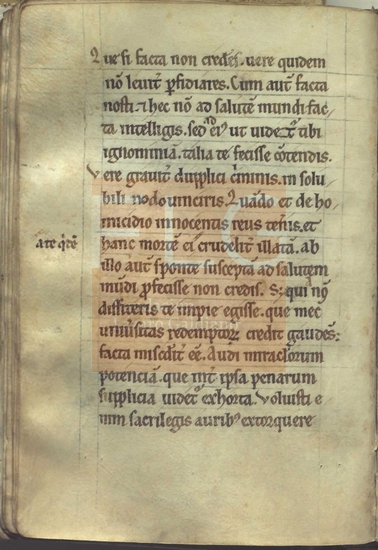 Que si facta non credeſ. uere quidem
nō leuit̃ ꝑfidiares. Cum aut̃ facta
nosti. ⁊ hec nō ad salutē mundi fac
ta intelligis. sed ad ei᷒ ut uidet᷑ tibi
ignominiā. talia te fecisse cōtendis.
Vere grauit̃ dupplici c̃minis. in solu
bili nodo uinciris. Quādo et de ho
micidio innocentis reus teñis. et
hanc mortē ei crudelit̃ illatā. ab
a te
illo aut̃ sponte susceptā ad salutem
mūdi ꝓfecisse non credis. S; qui nō
diffiteris te impie egisse. que mec
uniũsitas redemptorē credit gaudes;
facta misc̃dit̃ eē. Audi miraclorum
potenciā. que int̃ ipsa penarum
supplicia uidet᷑ exhorta. Voluisti e
nim sacrilegis aurib᷒ extorquere